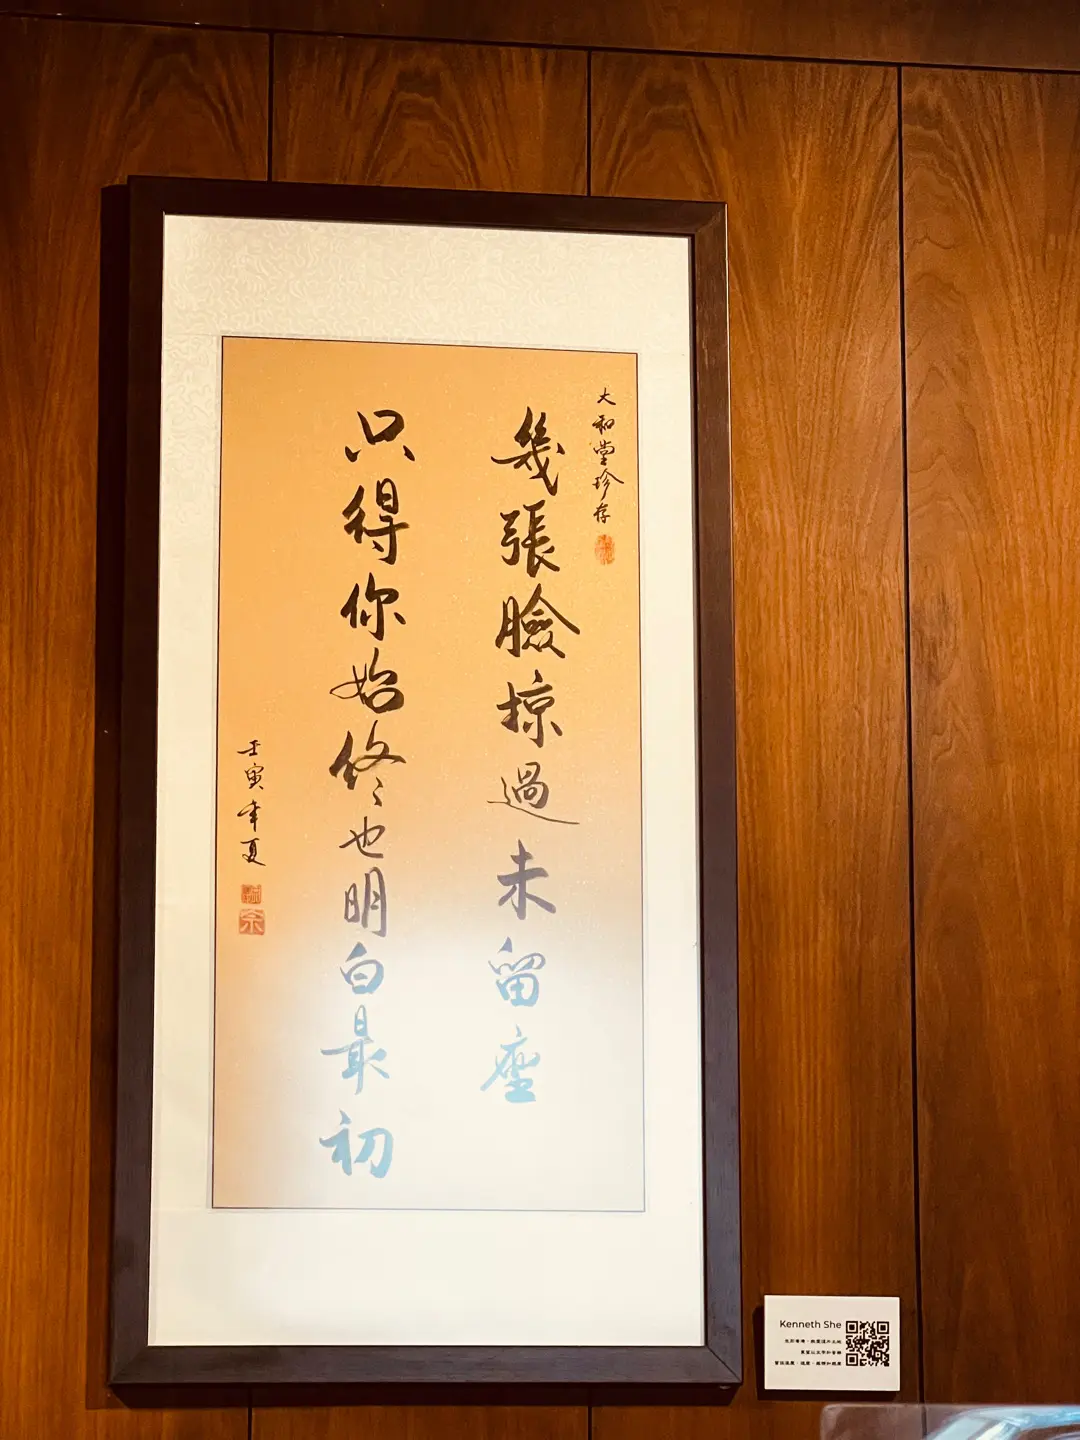 大和堂珍存
幾張臉掠過未留座
只得你始終也明白最初
壬寅年夏
Kenneth She